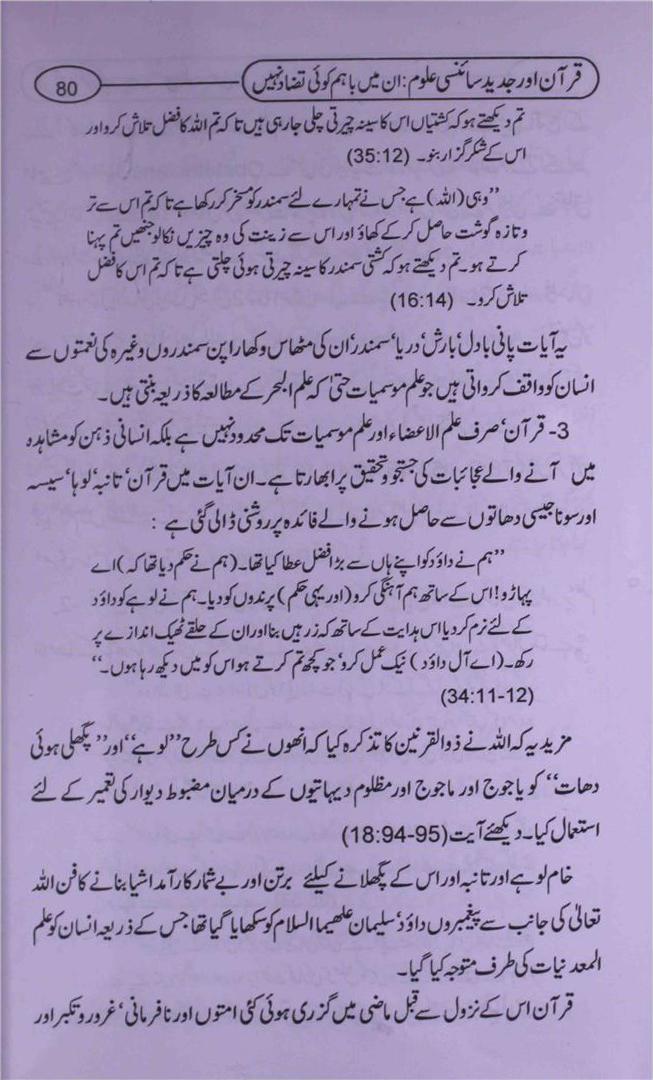 قرآن اور جدید سائنسی علوم: ان میں باہم کوئی تضاد نہیں
80
تم دیکھتے ہو کہ کشتیاں اس کا سینہ چیرتی چلی جا رہی ہیں تا کہ تم اللہ کا فضل تلاش کرو اور
اس کے شکر گزار بنو۔ (35:12)
”وہی (اللہ) ہے جس نے تمہارے لئے سمندر کو مسخر کر رکھا ہے تا کہ تم اس سے تر
و تازہ گوشت حاصل کر کے کھاؤ اور اس سے زینت کی وہ چیزیں نکالو جنھیں تم پہنا
کرتے ہو۔ تم دیکھتے ہو کہ کشتی سمندر کا سینہ چیرتی ہوئی چلتی ہے تا کہ تم اس کا فضل
تلاش کرو۔ (16:14)
یہ آیات پانی‘ بادل‘ بارش‘ دریا‘ سمندر‘ ان کی مٹھاس و کھارا پن سمندروں وغیرہ کی نعمتوں سے
انسان کو واقف کرواتی ہیں جو علم موسمیات حتیٰ کہ علم البحر کے مطالعہ کا ذریعہ بنتی ہیں۔
3- قرآن‘ صرف علم الاعضاء اور علم موسمیات تک محدود نہیں ہے بلکہ انسانی ذہن کو مشاہدہ
میں آنے والے عجائبات کی جستجو و تحقیق پر ابھارتا ہے۔ ان آیات میں قرآن‘ تانبہ‘ لوہا‘ سیسہ
اور سونا جیسی دھاتوں سے حاصل ہونے والے فائدہ پر روشنی ڈالی گئی ہے :
”ہم نے داؤد کو اپنے ہاں سے بڑا فضل عطا کیا تھا۔ (ہم نے حکم دیا تھا کہ) اے
پہاڑو! اس کے ساتھ ہم آہنگی کرو (اور یہی حکم) پرندوں کو دیا۔ ہم نے لوہے کو داؤد
کے لئے نرم کر دیا اس ہدایت کے ساتھ کہ زرہیں بنا اور ان کے حلقے ٹھیک اندازے پر
رکھ۔ (اے آل داؤد) نیک عمل کرو‘ جو کچھ تم کرتے ہو اس کو میں دیکھ رہا ہوں۔“
(34:11-12)
مزید یہ کہ اللہ نے ذوالقرنین کا تذکرہ کیا کہ انھوں نے کس طرح ”لوہے“ اور ”پگھلی ہوئی
دھات“ کو یاجوج اور ماجوج اور مظلوم دیہاتیوں کے درمیان مضبوط دیوار کی تعمیر کے لئے
استعمال کیا۔ دیکھئے آیت (18:94-95)
خام لوہے اور تانبہ اور اس کے پگھلانے کیلئے برتن اور بے شمار کار آمد اشیا بنانے کا فن اللہ
تعالیٰ کی جانب سے پیغمبروں داؤد‘ سلیمان علھیما السلام کو سکھایا گیا تھا جس کے ذریعہ انسان کو علم
المعدنیات کی طرف متوجہ کیا گیا۔
قرآن اس کے نزول سے قبل ماضی میں گزری ہوئی کئی امتوں اور نافرمانی‘ غرور و تکبر اور